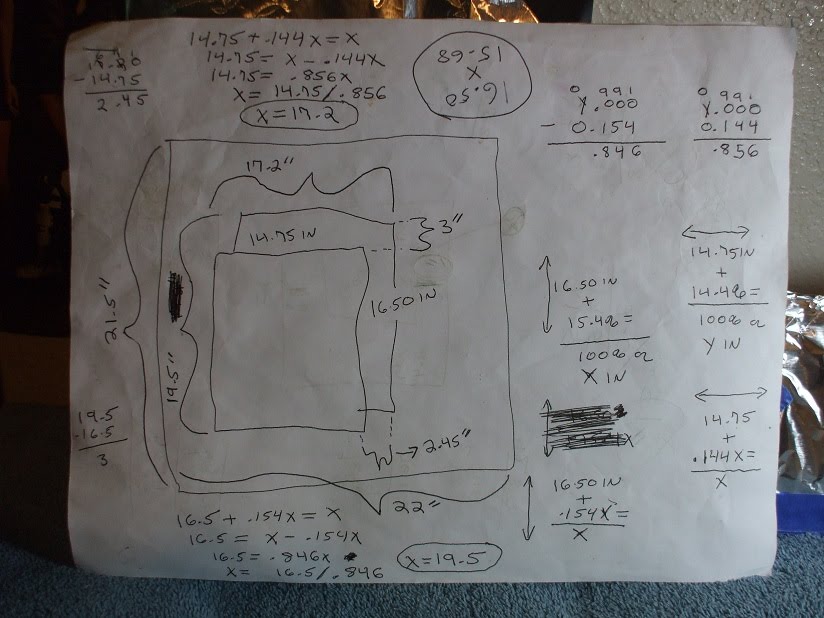 14.75 + .144X = X
14.75 = X - .144X
14.75 = .856X
X = 14.75/.856
X = 17.2
- 14.75
2.45
15.68
X
16.50
0 9 9 1
1.000
- 0.154
.846
0 9 9 1
1.000
0.144
.856
17.2"
14.75 IN
3"
16.50 IN
21.5"
19.5"
2.45"
22"
19.5
-16.5
3
16.50 IN
+
15.4% =
100% or
X IN
14.75 IN
+
14.4% =
100% or
Y IN
16.50 IN
+
.154X =
X
14.75
+
.144X =
X
16.5 + .154X = X
16.5 = X - .154X
16.5 = .846X
X = 16.5/.846
X = 19.5